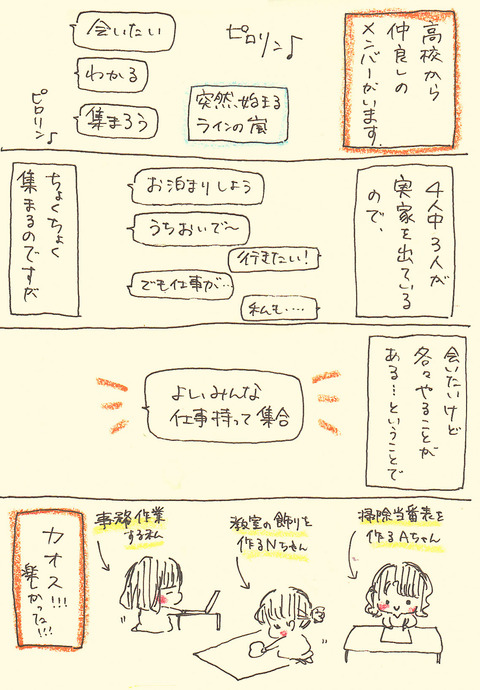 高校から
仲良しの
メンバーがいます。
ピロリン♪
会いたい
わかる
集まろう
突然、始まる
ラインの嵐
ピロリン♪
4人中3人が
実家を出ている
ので、
お泊まりしよう
うちおいで〜
行きたい!
でも仕事が…
私も‥‥
ちょくちょく
集まるのですが
会いたいけど
各々やることが
ある…ということで
よしみんな
仕事持って集合
掃除当番表を
作るAちゃん
教室の飾りを
作るNちゃん
事務作業
する私
カオス!!!
楽しかったな!!!